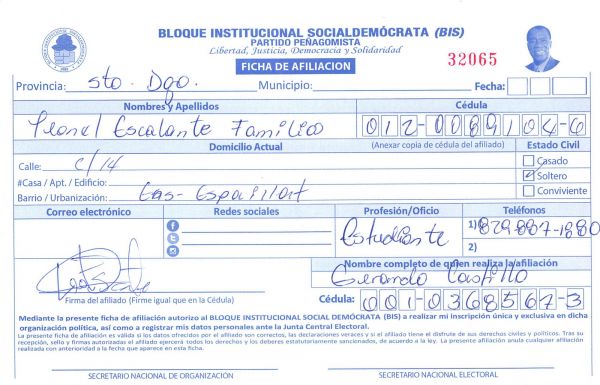 BLOQUE INSTITUCIONAL SOCIALDEMÓCRATA (BIS)
PARTIDO PEÑAGOMISTA
Libertad, Justicia, Democracia y Solidaridad
FICHA DE AFILIACION
32065
Provincia: Sto. Dgo. Municipio: Fecha:
Nombres y Apellidos Cédula
Leonel Escalante Familia 012-0089104-6
Domicilio Actual (Anexar copia de cédula del afiliado) Estado Civil
Calle: C/14 Casado
#Casa / Apt. / Edificio: Soltero
Barrio / Urbanización: Conviviente
Correo electrónico Redes sociales Profesión/Oficio Teléfonos
Estudiante 1) 829-887-1880
2)
Nombre completo de quien realiza la afiliación
Gerardo Castillo
Firma del afiliado (Firme igual que en la Cédula) Cédula: 001-0368567-3
Mediante la presente ficha de afiliación autorizo al BLOQUE INSTITUCIONAL SOCIAL DEMÓCRATA (BIS) a realizar mi inscripción única y exclusiva en dicha
organización política, así como a registrar mis datos personales ante la Junta Central Electoral.
La presente ficha de afiliación es válida si los datos ofrecidos por el afiliado son correctos, las declaraciones veraces y si el afiliado tiene el disfrute de sus derechos civiles y políticos. Tras su
recepción, sello y firmas autorizadas el afiliado ejercerá todos los derechos y los deberes estatutariamente sancionados, de acuerdo a la ley. La presente afiliación anula cualquier afiliación
realizada con anterioridad a la fecha que aparece en esta ficha.
SECRETARIO NACIONAL DE ORGANIZACIÓN SECRETARIO NACIONAL ELECTORAL